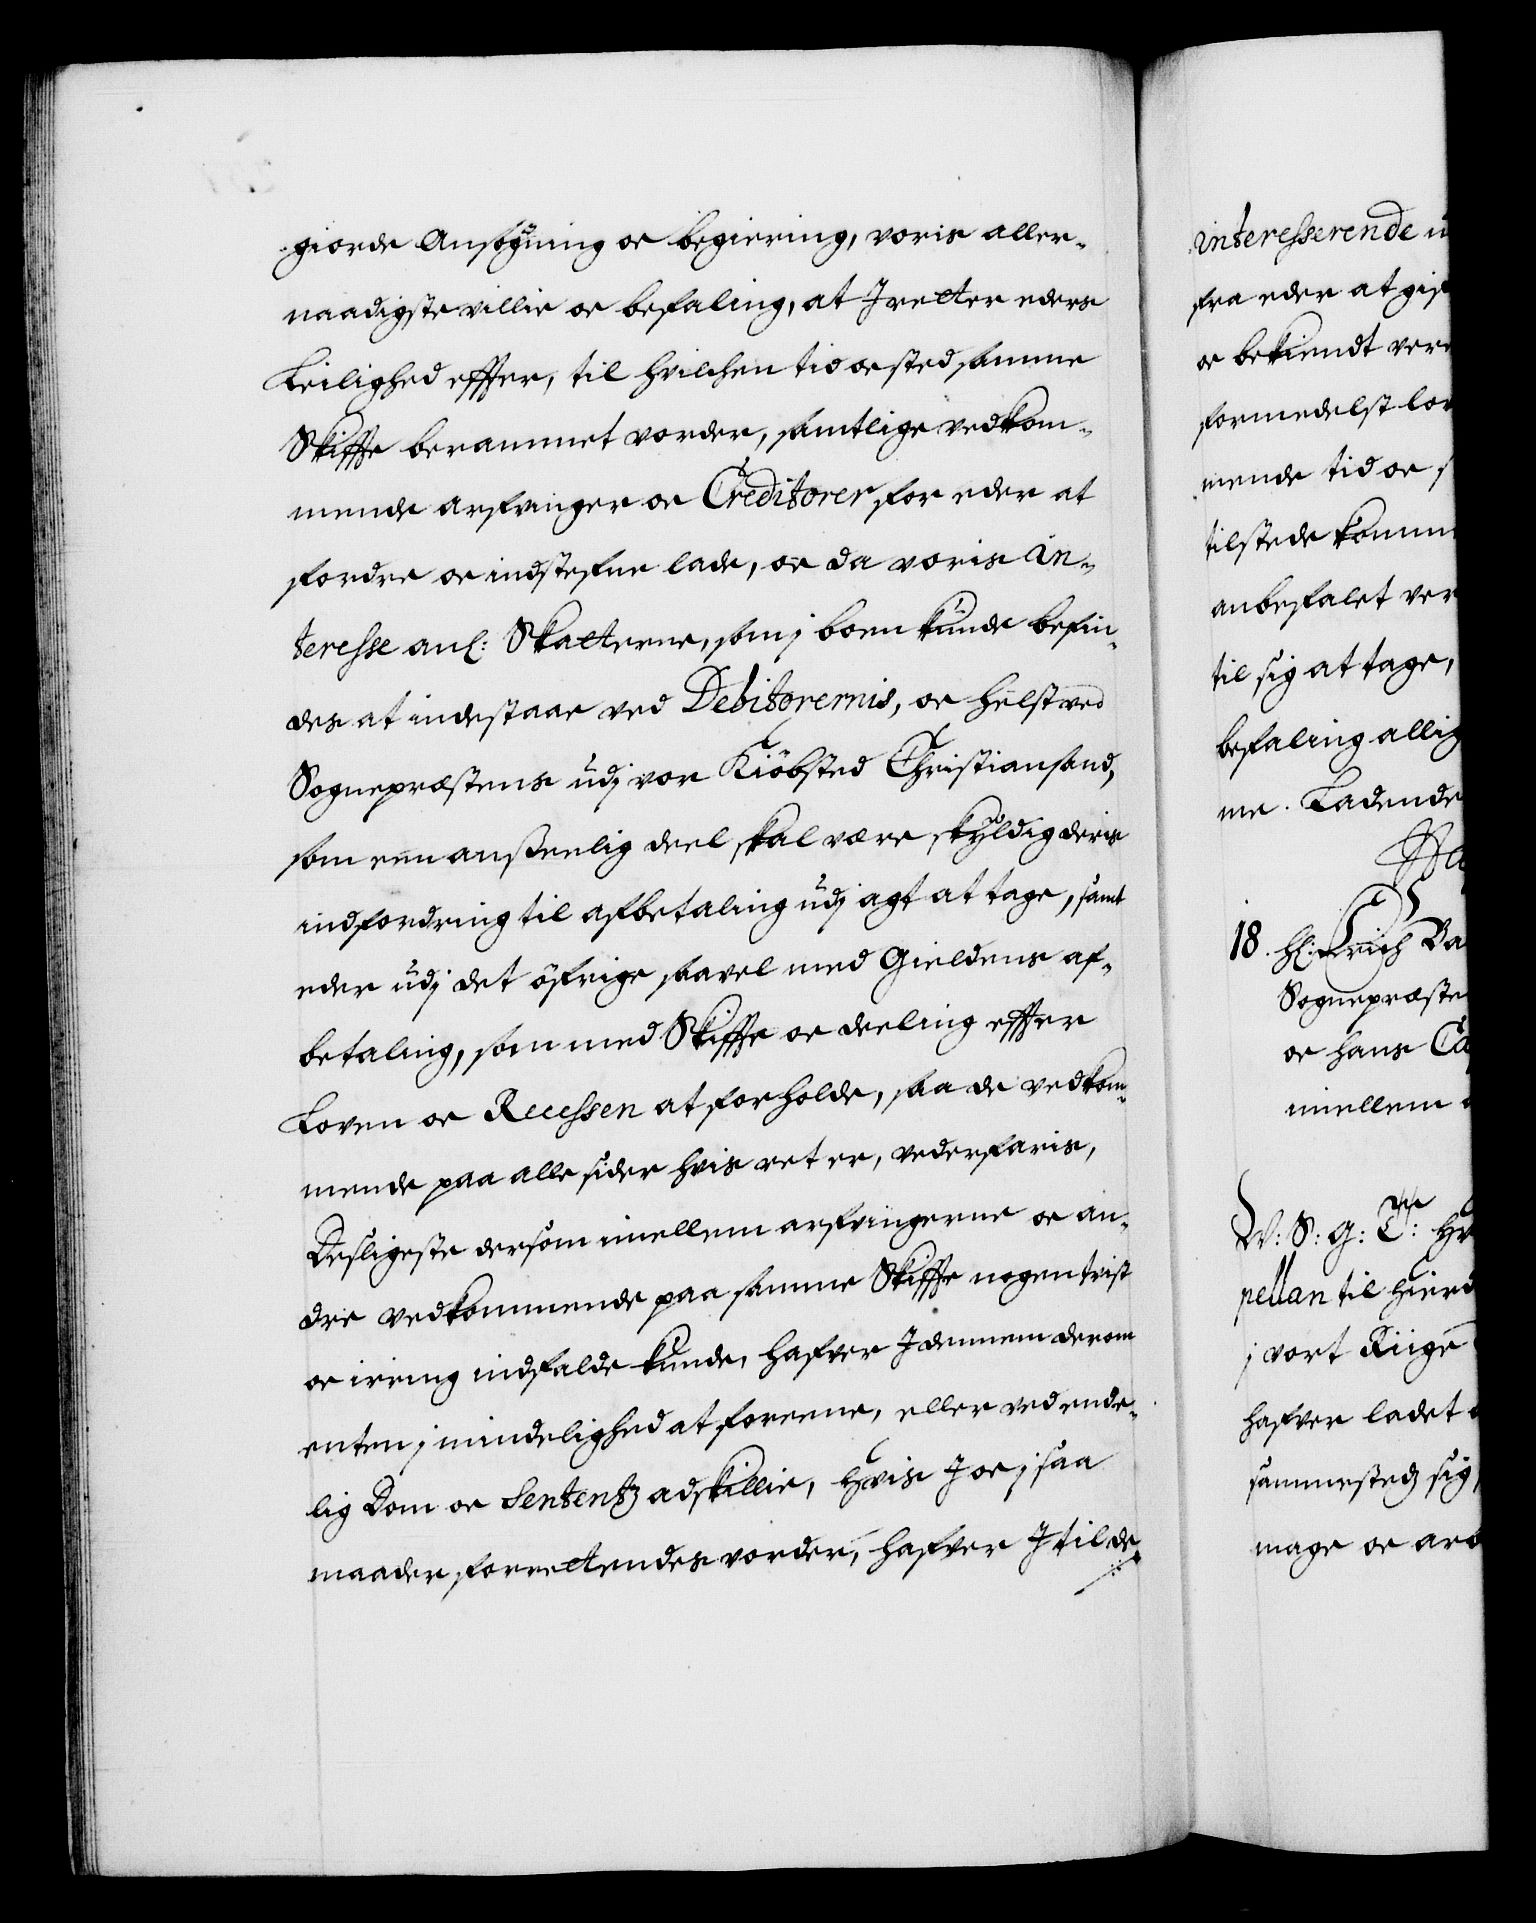 giorde Ansøgning oc begiering, voris aller-
naadigste villie oc befaling, at I retter eders
Leilighed effter, til hvilchen tid oc sted samme
Skiffte berammet vorder, samtlige vedkom-
mende arfvinger oc Creditorer for eder at
fordre oc indstefne lade, oc da voris in-
teresse anl: Skatterne, som j boen kunde befin-
des at indestaae ved Debitorernis, oc helst ved
Sognepræstens udj vor Kiöbsted Christiansand,
som een anseenlig deel skal være skyldig deris
indfordring til afbetaling udj agt at tage, samt
eder udj det öfrige saavel med Gieldens af-
betaling, som med Skiffte oc deeling effter
Loven oc Recessen at forholde, saa de vedkom-
mende paa alle sider hvis ret er, vederfaris,
Desligeste dersom imellem arfvingerne oc an-
dre vedkommende paa samme Skiffte nogen tvist
oc irring indfalde kunde, hafver I dennem derom
enten j mindelighed at foreene, eller ved ende-
lig Dom oc Sententz adskillie, hvis I oc j saa
maader forrettendes vorder, hafver I til de
interesserende u
fra eder at gif
oc bekiendt vere
formedelst lov
mende tid oc s
tilstede komme
anbefalet ver
til sig at tage,
befaling allig
me. Ladende
Ha
18. Hl. Erich Ba
Sognepræste
oc hans Ca
imellem
W: S: G: T: Hr
pellan til Hierd
j vort Riige
hafver ladet
sammesteds sig,
mage oc ar